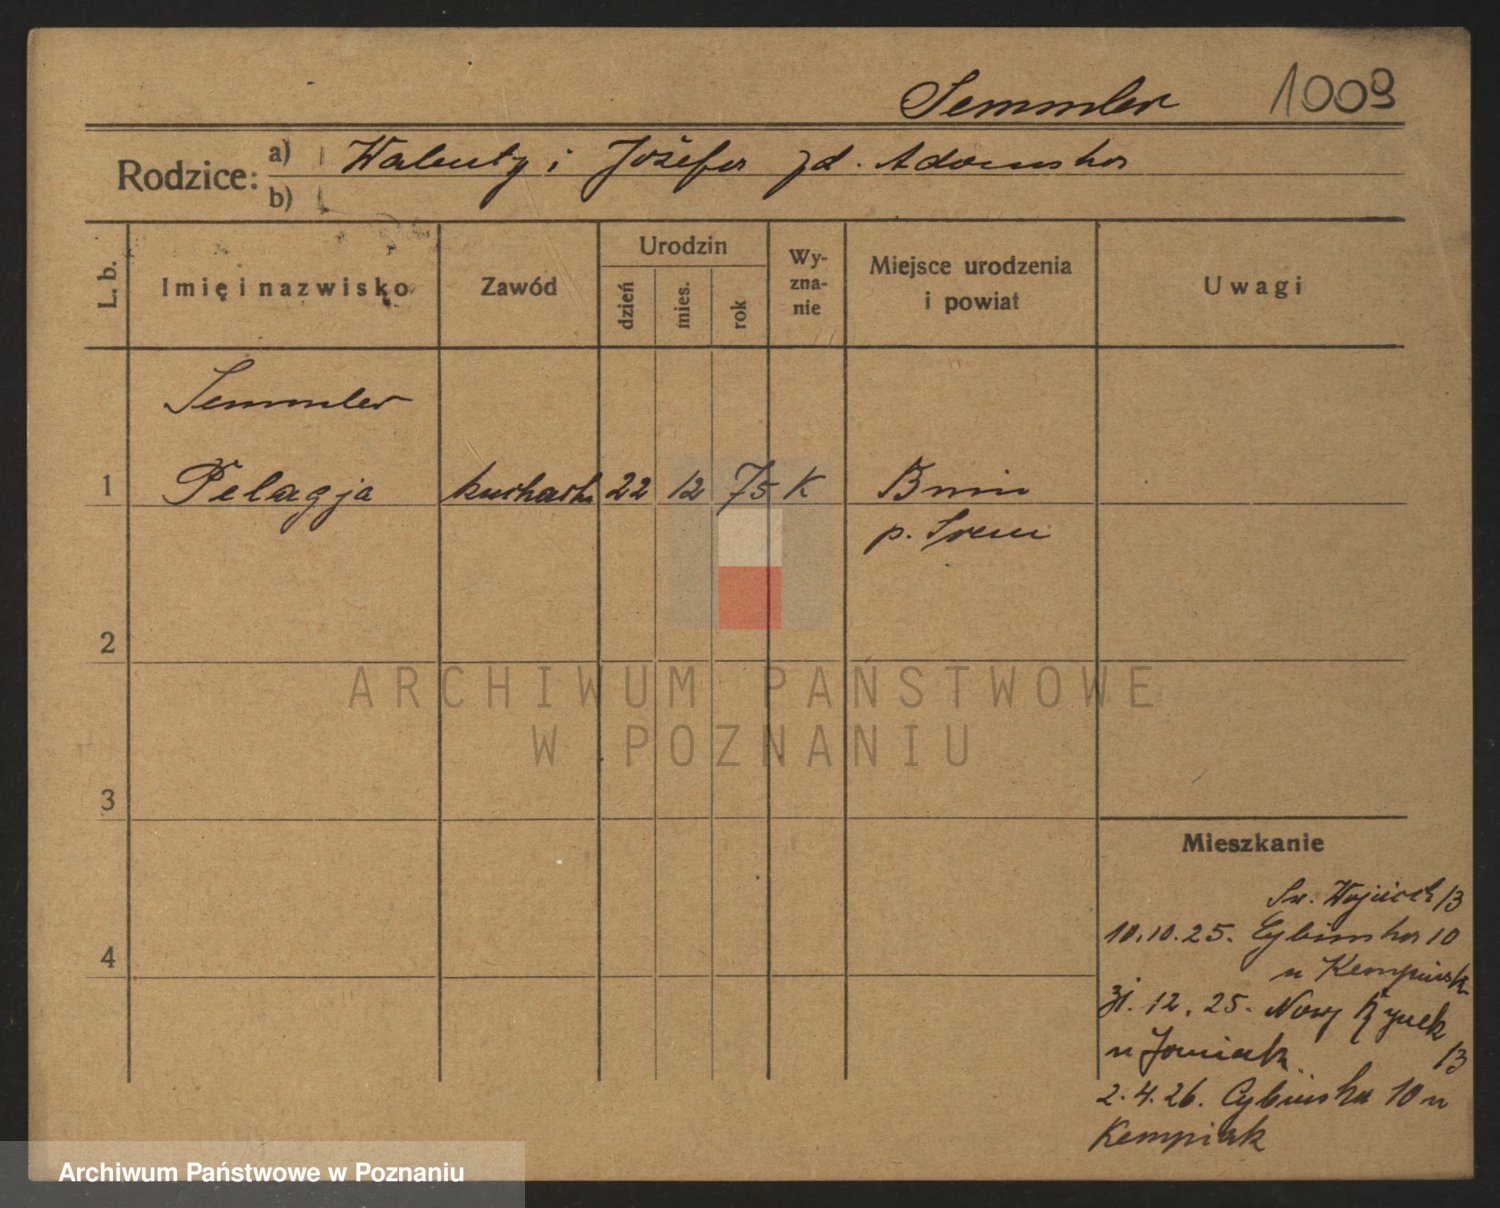 Semmler 1009
Rodzice: a) Walenty i Józefa zd. Adamska
b)
L. b.
Imię i nazwisko
Zawód
Urodzin
dzień
mies.
rok
Wy-
zna-
nie
Miejsce urodzenia
i powiat
Uwagi
Semmler
1 Pelagja kucharka 22 12 75 K Bnin
p. Śrem
2
ARCHIWUM PAŃSTWOWE
W POZNANIU
3
Mieszkanie
Św. Wojciech 13
4 10.10.25. Cybińska 10
u Kempińsk
31.12.25. Nowy Rynek
13
2.4.26. Cybińska 10 u
Kempiak
Archiwum Państwowe w Poznaniu